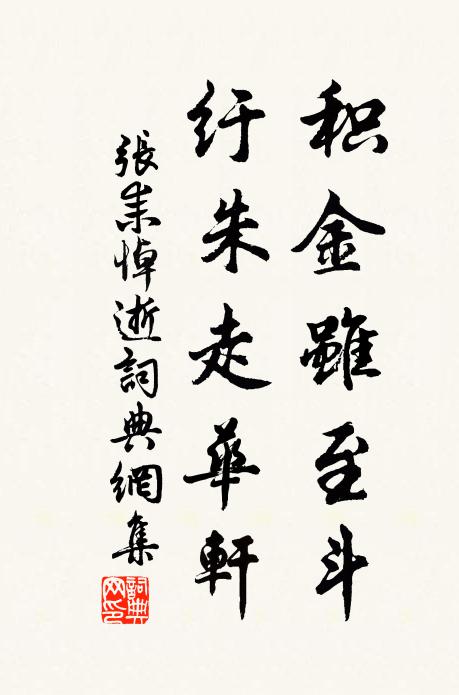 积金雖至斗
纡朱走華軒
張耒悼逝詞典網集
詞典网印